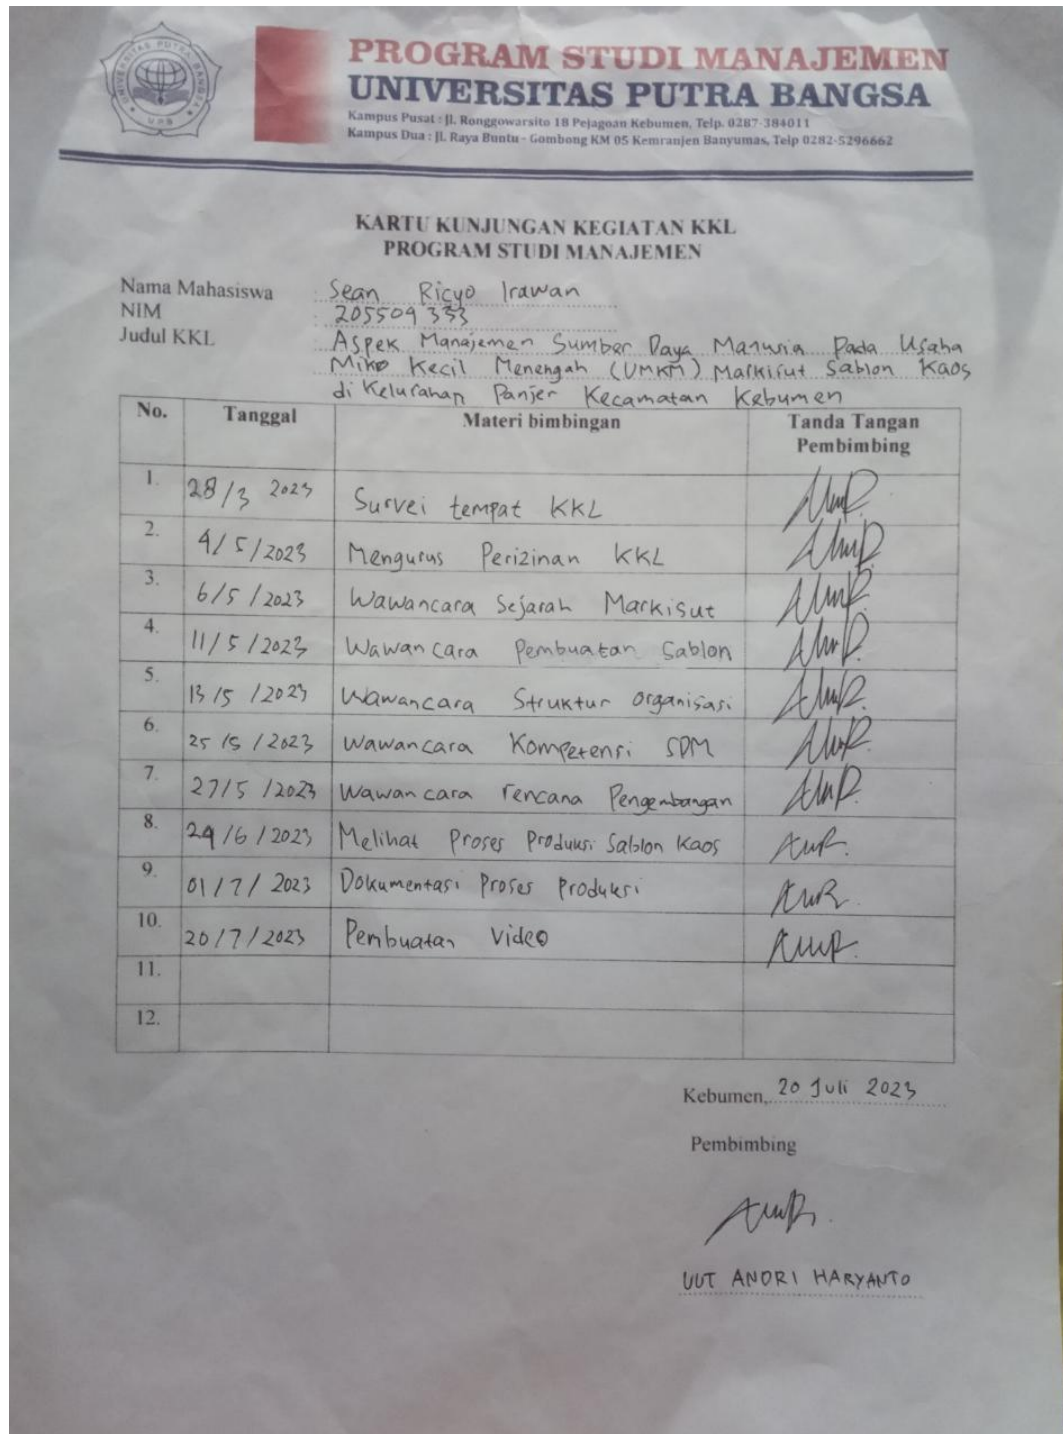 UNIVERSITAS PUTRA BANGSA
UPB
PROGRAM STUDI MANAJEMEN
UNIVERSITAS PUTRA BANGSA
Kampus Pusat : Jl. Ronggowarsito 18 Pejagoan Kebumen, Telp. 0287-384011
Kampus Dua : Jl. Raya Buntu - Gombong KM 05 Kemranjen Banyumas, Telp 0282-5296662
KARTU KUNJUNGAN KEGIATAN KKL
PROGRAM STUDI MANAJEMEN
Nama Mahasiswa : Sean Ricyo Irawan
NIM : 205509333
Judul KKL : Aspek Manajemen Sumber Daya Manusia Pada Usaha
Miko Kecil Menengah (UMKM) Markisut Sablon Kaos
di Kelurahan Panjer Kecamatan Kebumen
No. Tanggal Materi bimbingan Tanda Tangan Pembimbing
1. 28/3 2023 Survei tempat KKL
2. 4/5/2023 Mengurus Perizinan KKL
3. 6/5/2023 Wawancara Sejarah Markisut
4. 11/5/2023 Wawancara Pembuatan Sablon
5. 13/5/2023 Wawancara Struktur organisasi
6. 25/5/2023 Wawancara Kompetensi SDM
7. 27/5/2023 Wawancara rencana Pengembangan
8. 24/6/2023 Melihat Proses Produksi Sablon Kaos
9. 01/7/2023 Dokumentasi Proses Produksi
10. 20/7/2023 Pembuatan Video
11.
12.
Kebumen, 20 Juli 2023
Pembimbing
UUT ANDRI HARYANTO